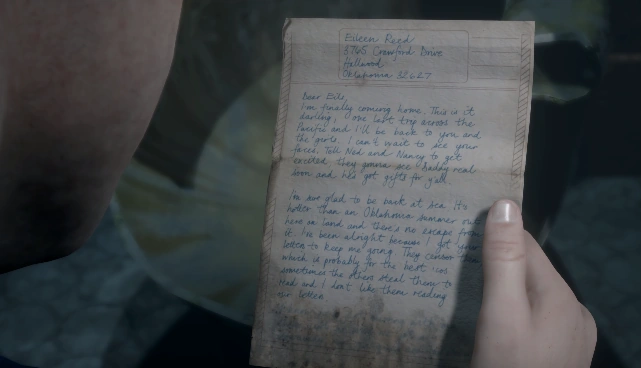 Eileen Reed
3765 Crawford Drive
Hallwood
Oklahoma 32627
Dear Eile,
I'm finally coming home. This is it
darling, one last trip across the
Pacific and I'll be back to you and
the girls. I can't wait to see your
faces. Tell Ned and Nancy to get
excited they gonna see daddy real
soon and he's got gifts for y'all.
I'm are glad to be back at sea. It's
hotter than an Oklahoma summer out
here on land and there's no escape from
it. I've been alright because I got your
letters to keep me going. They censor
which is probably for the best cos
sometimes the others steal them to
read and I don't like them reading
our letters